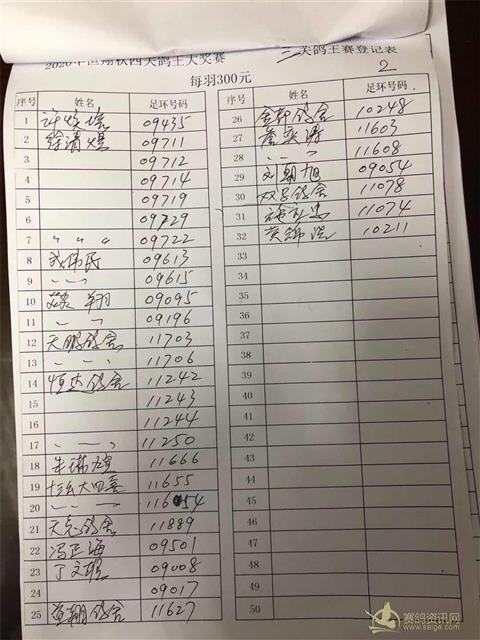 2020年恒翔秋四关鸽王大奖赛 三关鸽王赛登记表
每羽300元 2
序号 姓名 足环号码
1 09435
2 徐清煜 09711
3 09712
4 09714
5 09719
6 09729
7 〃 〃 〃 09722
8 09613
9 〃 〃 09615
10 翔 09095
11 〃 〃 09196
12 天鹏鸽舍 11703
13 〃 〃 11706
14 恒达鸽舍 11242
15 11243
16 11244
17 〃 〃 11250
18 朱瑞 11666
19 大四喜 11655
20 〃 〃 11654
21 天亮鸽舍 11889
22 冯正海 09501
23 丁文 09008
24 09017
25 鸽舍 11627
序号 姓名 足环号码
26 鸽舍 10248
27 11603
28 〃 〃 11608
29 刘朝旭 09054
30 双号鸽舍 11078
31 11074
32 黄锦 10211
33
34
35
36
37
38
39
40
41
42
43
44
45
46
47
48
49
50
赛鸽资讯网
www.saige.com